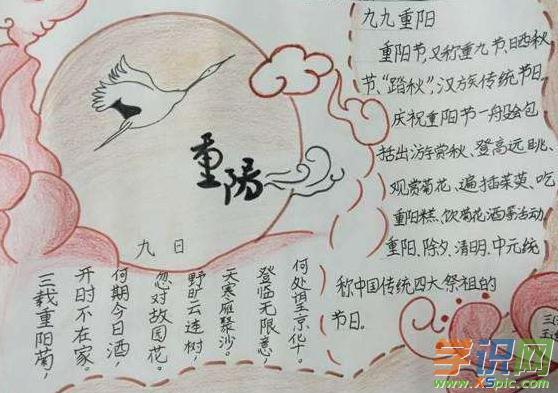 九九重阳
重阳节,又称重九节、晒秋
节、“踏秋”,汉族传统节日。
庆祝重阳节一般会包
括出游赏秋、登高远眺、
观赏菊花、遍插茱萸、吃
重阳糕、饮菊花酒等活动
重阳、除夕、清明、中元统
称中国传统四大祭祖的
节日。
重阳
九日
三载重阳菊,
开时不在家。
何期今日酒,
忽对故园花。
野旷云连树,
天寒雁聚沙。
登临无限意,
何处望京华。
学识网
www.xspic.com